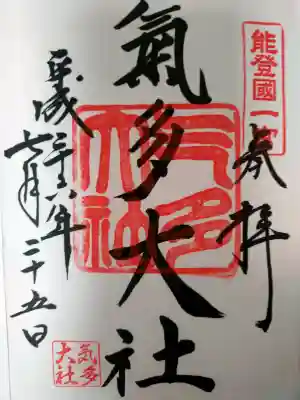 能登國一宮
奉拝
氣多大社
氣多大社
平成二十六年
七月二十五日
氣多
大社